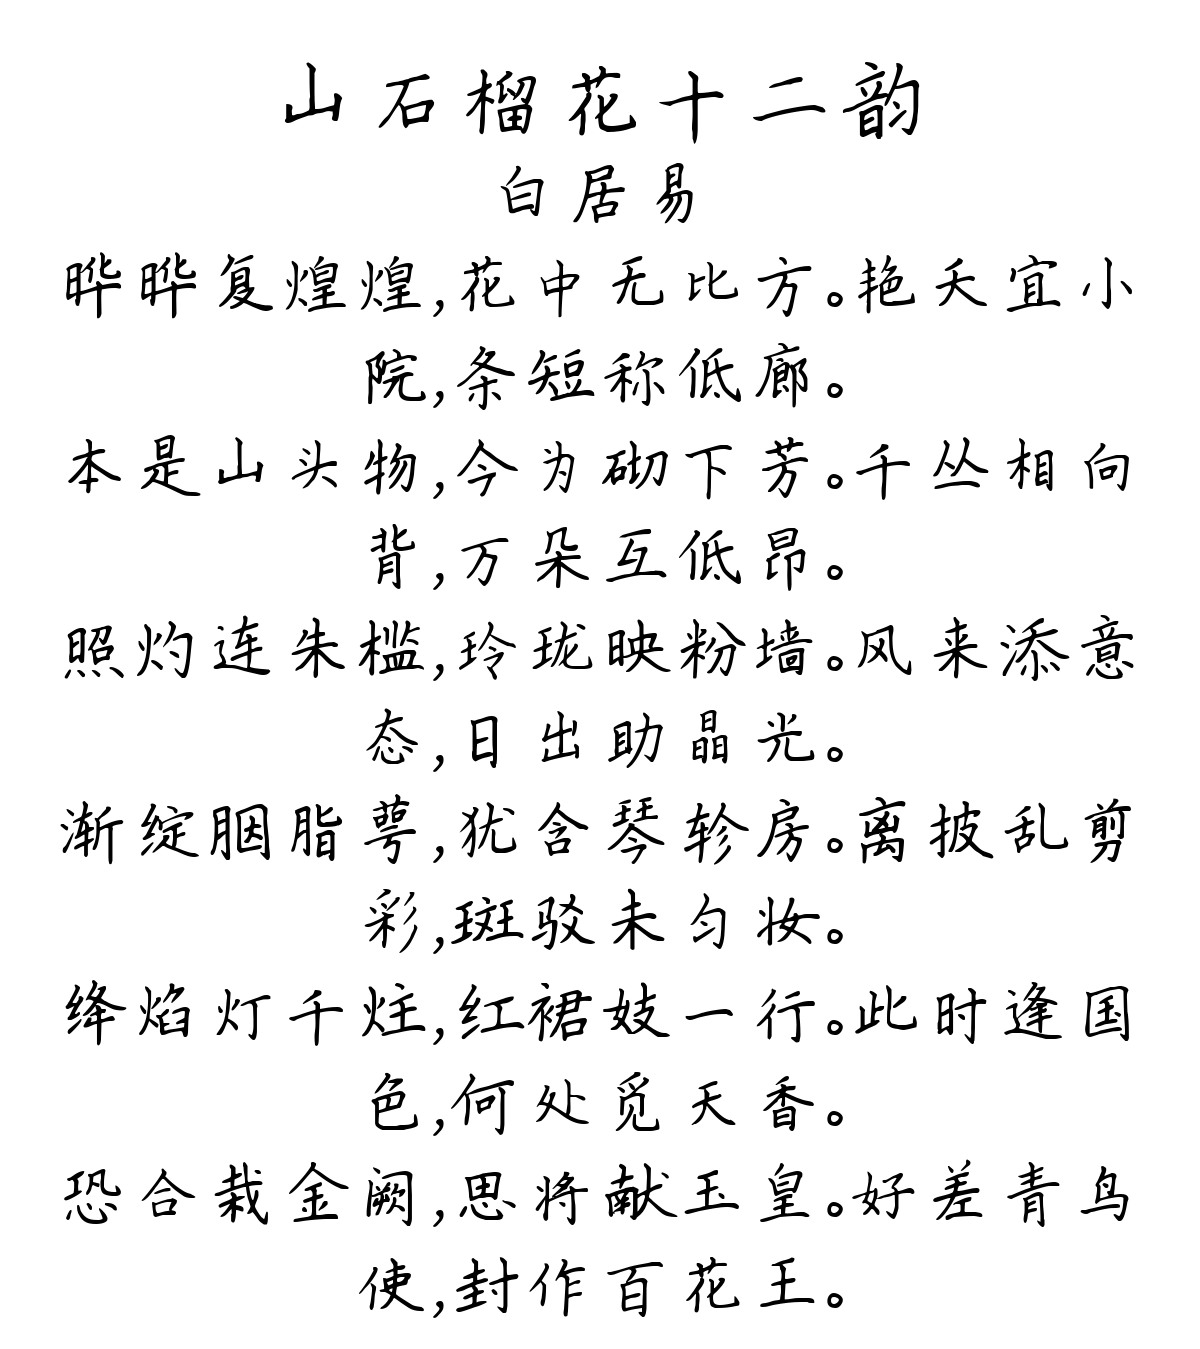 山石榴花十二韵
白居易
晔晔复煌煌,花中无比方。艳夭宜小
院,条短称低廊。
本是山头物,今为砌下芳。千丛相向
背,万朵互低昂。
照灼连朱槛,玲珑映粉墙。风来添意
态,日出助晶光。
渐绽胭脂萼,犹含琴轸房。离披乱剪
彩,斑驳未匀妆。
绛焰灯千炷,红裙妓一行。此时逢国
色,何处觅天香。
恐合栽金阙,思将献玉皇。好差青鸟
使,封作百花王。